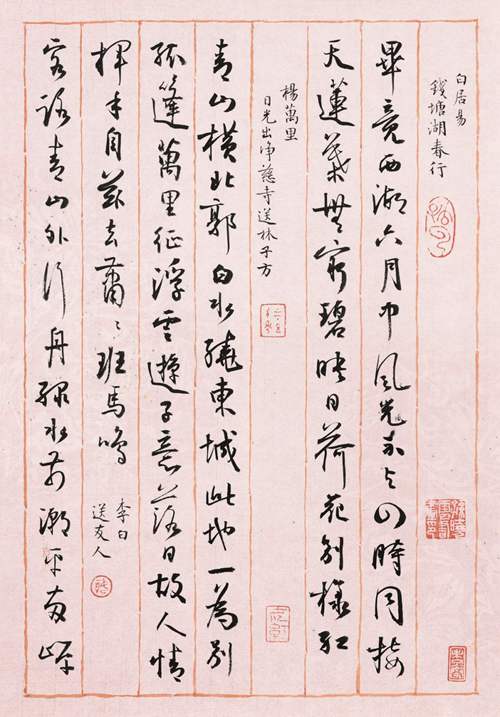 白居易
錢塘湖春行
畢竟西湖六月中風光不與四時同接
天蓮葉無窮碧映日荷花別樣紅
楊萬里
日光出净慈寺送林子方
青山橫北郭白水繞東城此地一為別
孤蓬萬里征浮雲遊子意落日故人情
揮手自茲去蕭〻班馬鳴
李白
送友人
客路青山外行舟綠水前潮平兩岸